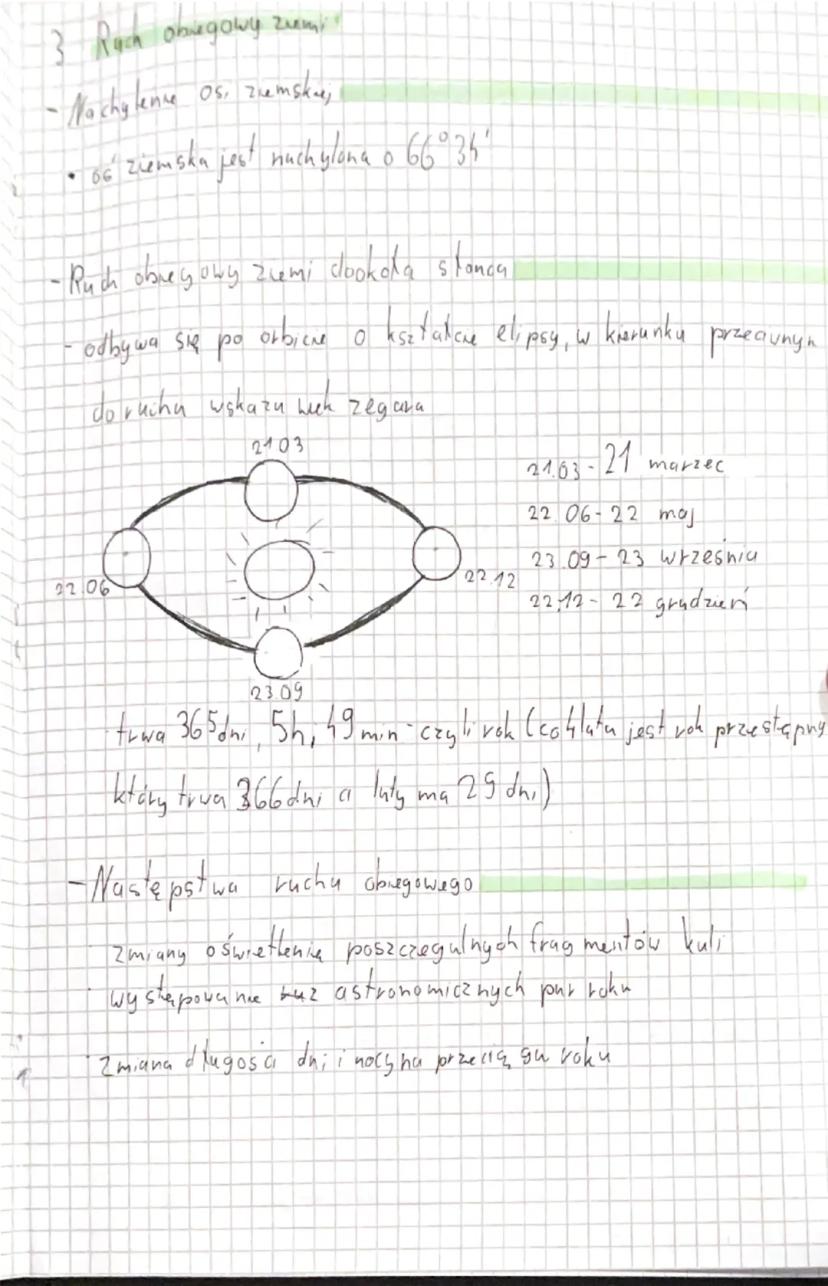 3 Ruch obiegowy ziemi
- Nachylenie osi ziemskiej
• oś ziemska jest nachylona o 66°34'
- Ruch obiegowy ziemi dookoła słońca
- odbywa się po orbicie o kształcie elipsy, w kierunku przeciwnym
do ruchu wskazuwek zegara
21 03
22.06
22.12
23.09
21.03 - 21 marzec
22.06 - 22 maj
23.09 - 23 wrześniu
22.12 - 22 grudzień
trwa 365 dni, 5h, 49 min - czyli rok (co 4 lata jest rok przestępny
który trwa 366 dni a luty ma 29 dni)
- Następstwa ruchu obiegowego
zmiany oświetlenia poszczegulnych fragmentów kuli
występowanie astronomicznych pur roku
zmiana długości dni i nocy na przeciągu roku